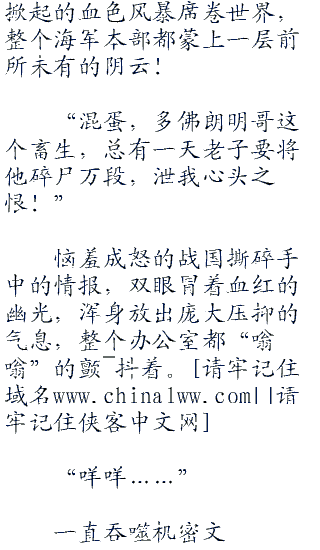 掀起的血色风暴席卷世界，
整个海军本部都蒙上一层前
所未有的阴云！
“混蛋，多佛朗明哥这
个畜生，总有一天老子要将
他碎尸万段，泄我心头之
恨！”
恼羞成怒的战国撕碎手
中的情报，双眼冒着血红的
幽光，浑身放出庞大压抑的
气息，整个办公室都“嗡
嗡”的颤¯抖着。[请牢记住
域名www.china1ww.com||请
牢记住侠客中文网]
“咩咩……”
一直吞噬机密文